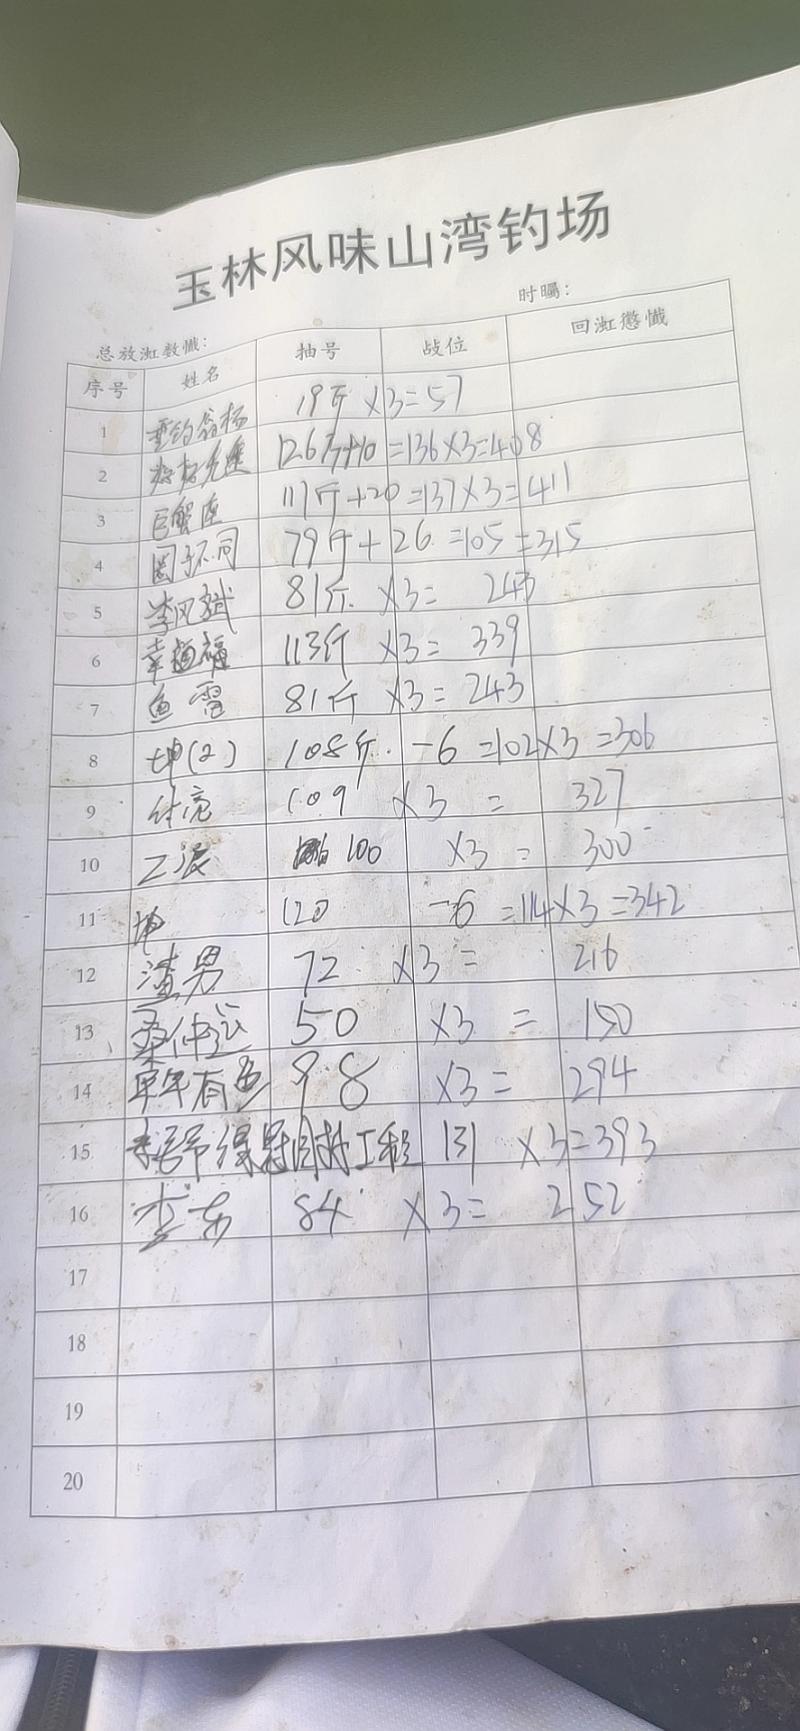 玉林风味山湾钓场
总放汕数懺： 时曯：
序号 姓名 抽号 战位 回汕懲懺
1 19斤 ×3=57
2 126斤+10 =136×3=408
3 巨蟹座 117斤+20=137×3=411
4 圈子不同 79斤+26 =105 =315
5 李风斌 81斤 ×3= 243
6 幸福 113斤 ×3= 339
7 鱼雷 81斤 ×3=243
8 坤(2) 108斤 -6 =102×3 =306
9 109 ×3 = 327
10 100 ×3 = 300
11 坤 120 -6 =114×3=342
12 渣男 72 ×3= 216
13 桑仲运 50 ×3 = 150
14 年年有鱼 98 ×3= 294
15 工程 131 ×3=393
16 李东 84 ×3= 252
17
18
19
20